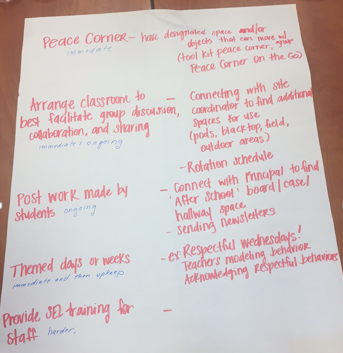 Peace Corner – have designated space and/or
objects that can move w/
immediate
(tool kit peace corner,
Peace Corner on the Go)
Arrange classroom to
best facilitate group discussion,
collaboration, and sharing
immediate / ongoing
– Connecting with site
coordinator to find additional
spaces for use
(pods, blacktop, field,
outdoor areas)
- Rotation schedule
Post work made by
students ongoing
– Connect with Principal to find
'After School' board / case /
hallway space
- sending newsletters
Themed days or weeks
immediate and then upkeep
- ex Respectful Wednesdays!
Teachers modeling behavior
Acknowledging respectful behaviors
Provide SEL training for –
staff harder,